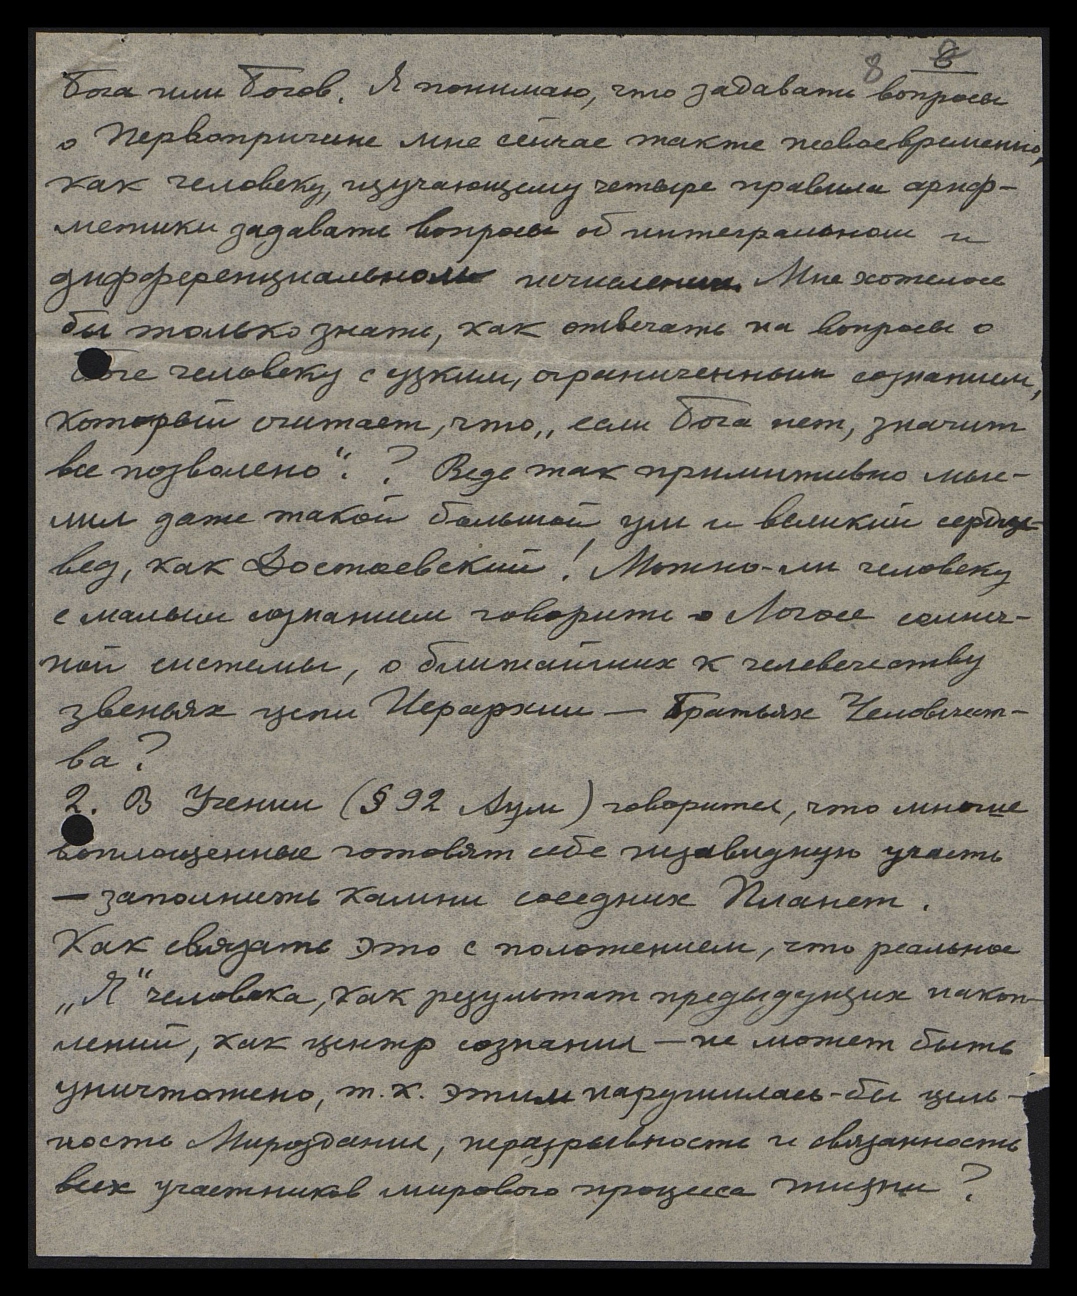 8 8
Бога или Богов. Я понимаю, что задавать вопросы
о Первопричине мне сейчас также несвоевременно,
как человеку, изучающему четыре правила ариф-
метики задавать вопросы об интегральном и
дифференциальном исчислении. Мне хотелось
бы только знать, как отвечать на вопросы о
Боге человеку с узким, ограниченным сознанием,
который считает, что „если Бога нет, значит
все позволено“. ? Ведь так примитивно мыс-
лил даже такой большой ум и великий сердце-
вед, как Достоевский! Можно-ли человеку
с малым сознанием говорить о Логосе солнеч-
ной системы, о ближайших к человечеству
звеньях цепи Иерархии — Братьях Человечест-
ва?
2. В Учении (§ 92 Аум) говорится, что многие
воплощенные готовят себе незавидную участь
— заполнить камни соседних Планет.
Как связать это с положением, что реальное
„Я“ человека, как результат предыдущих накоп-
лений, как центр сознания — не может быть
уничтожено, т. к. этим нарушилась-бы цель-
ность Мироздания, неразрывность и связанность
всех участников мирового процесса жизни?